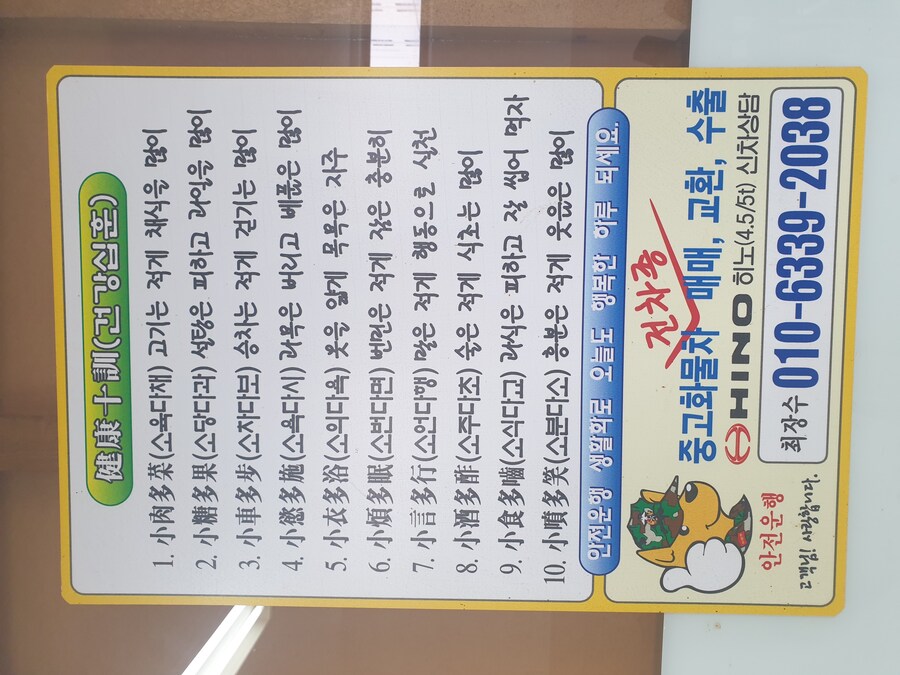 健康十訓(건강십훈)
1. 小肉多菜(소육다채) 고기는 적게 채식을 많이
2. 小糖多果(소당다과) 설탕은 피하고 과일을 많이
3. 小車多步(소차다보) 승차는 적게 걷기는 많이
4. 小慾多施(소욕다시) 과목은 버리고 베품은 많이
5. 小衣多浴(소의다욕) 옷을 얇게 목욕은 자주
6. 小煩多眠(소번다면) 번민은 적게 잠은 충분히
7. 小言多行(소언다행) 말은 적게 행동으로 실천
8. 小酒多酢(소주다초) 술은 적게 식초는 많이
9. 小食多嚙(소식다교) 과식은 피하고 잘 씹어 먹자
10. 小噴多笑(소분다소) 흥분은 적게 웃음은 많이
안전운행 생활화로 오늘도 행복한 하루 되세요.
전차종
중고화물차 매매, 교환, 수출
HINO 히노(4.5/5t) 신차상담
안전운행
고객님! 사랑합니다.
최장수 010-6339-2038